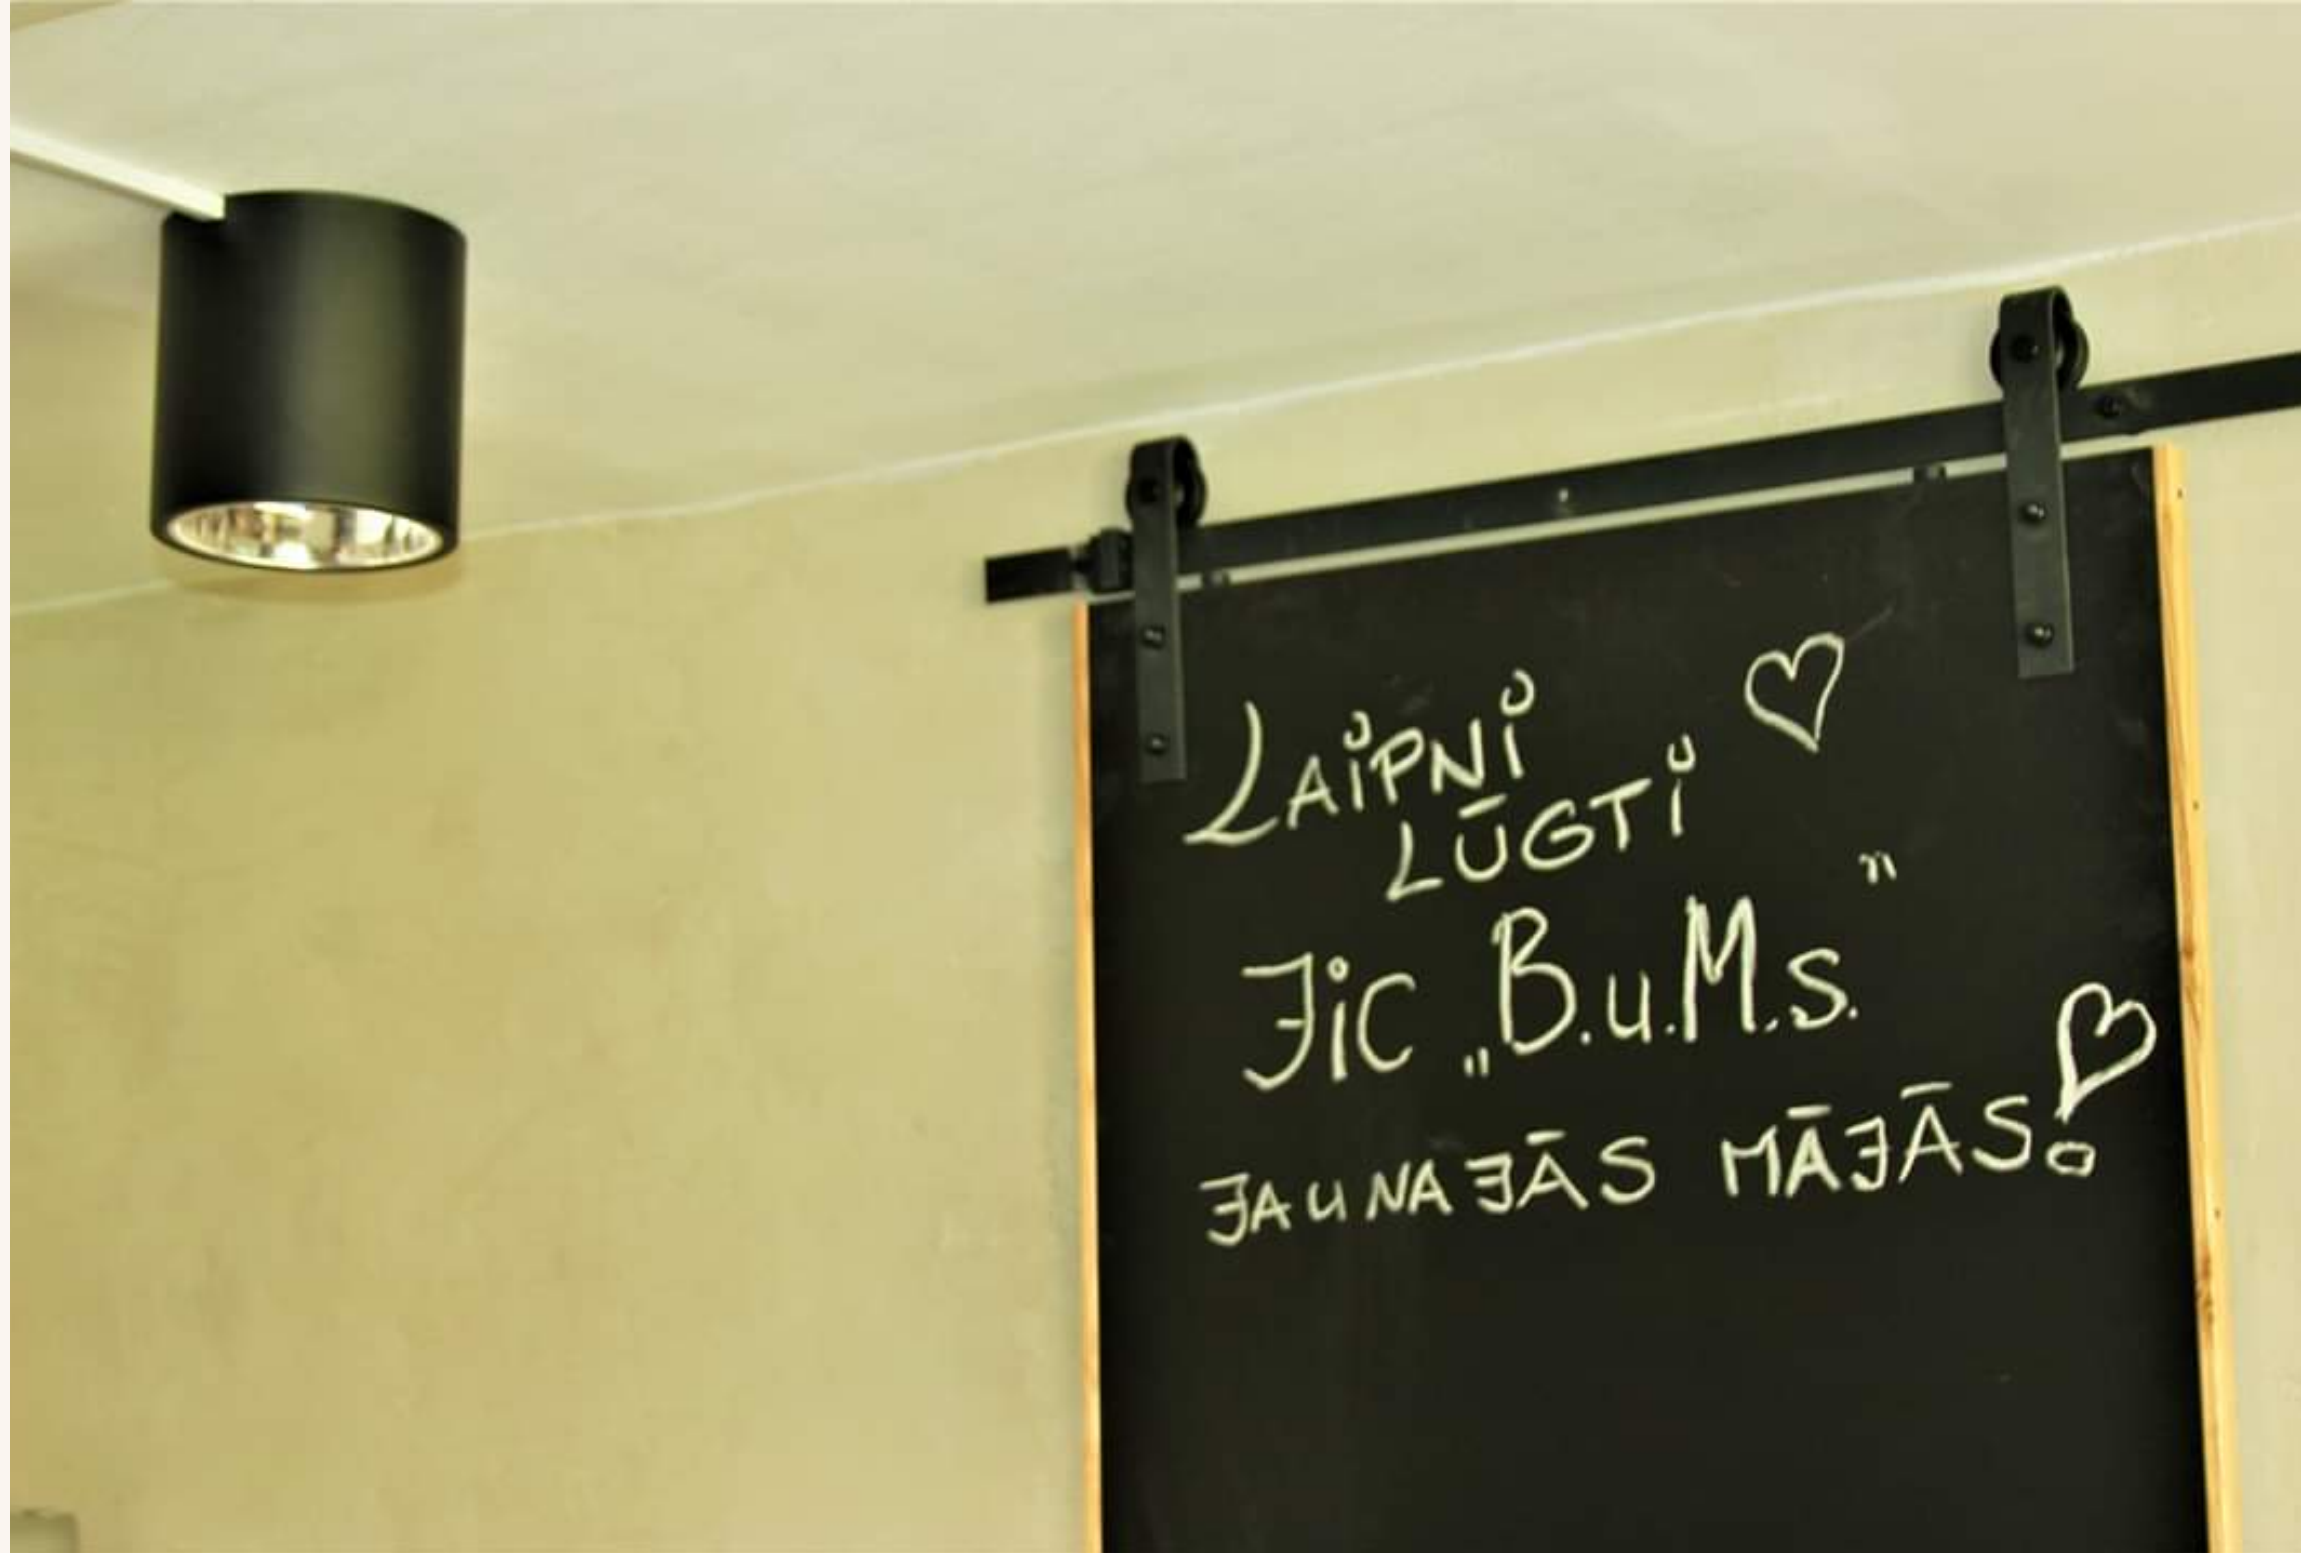 LAIPNI
LŪGTI
JIC „B.u.M.s."
JAUNAJĀS MĀJĀS!